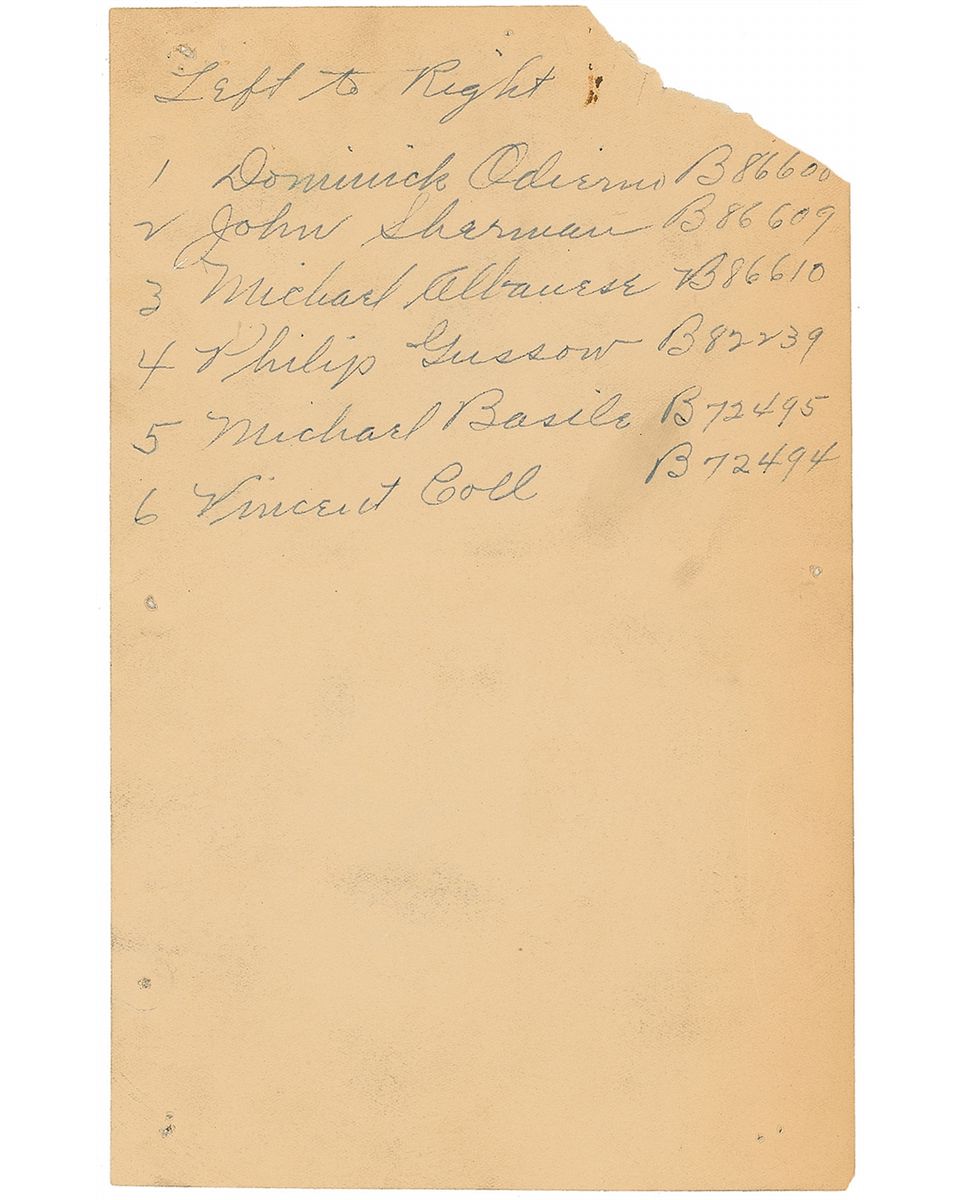 Left to Right
1 Dominick Odierno B86600
2 John Sherman B86609
3 Michael Albanese B86610
4 Philip Gussow B82239
5 Michael Basile B72495
6 Vincent Coll B72494